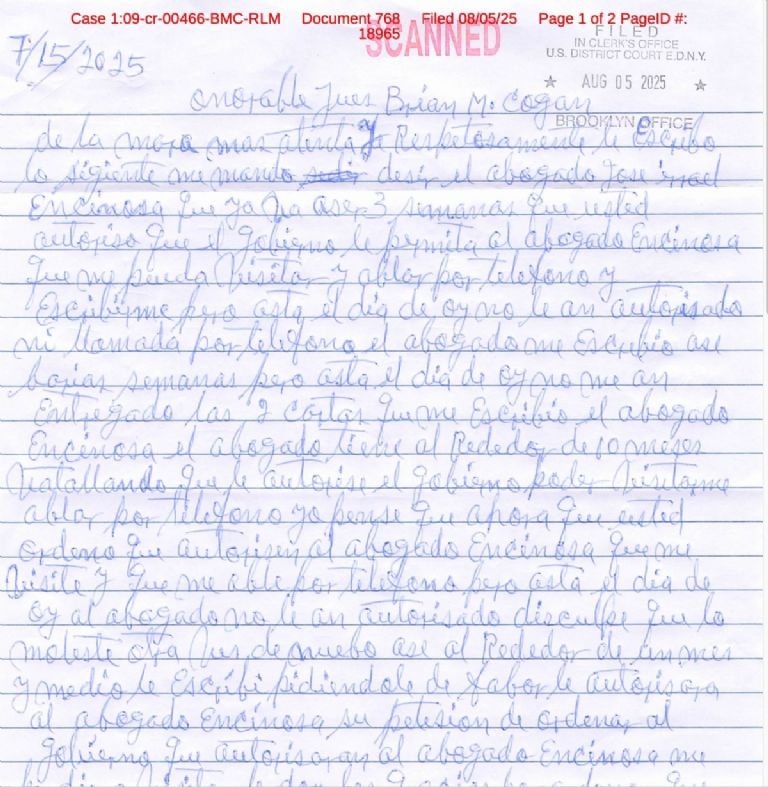 Case 1:09-cr-00466-BMC-RLM Document 768 Filed 08/05/25 Page 1 of 2 PageID #:
18965
SCANNED
FILED
IN CLERK'S OFFICE
U.S. DISTRICT COURT E.D.N.Y.
★ AUG 05 2025 ★
BROOKLYN OFFICE
7/15/2025
onorable Jues Brian M. Cogan
de la mas atenta y Respetosamente le Escribo
lo sigiente me mando desir el abogado Jose
Encinosa que ya va aser 3 semanas que usted
autoriso que el gobierno le permita al abogado Encinosa
que me pueda Visitar y ablar por telefono y
Escribirme pero asta el dia de oy no le an autorisado
ni llamada por telefono el abogado me Escribio ase
barias semanas pero asta el dia de oy no me an
Entregado las 2 cartas que me Escribio el abogado
Encinosa el abogado tiene al Rededor de 10 meses
Vatallando que le autorise el gobierno poder Visitarme
ablar por telefono yo pense que ahora que usted
ordeno que autorisen al abogado Encinosa que me
Visite y que me able por telefono pero asta el dia de
oy al abogado no le an autorisado disculpe que lo
moleste otra Ves de nuebo ase al Rededor de un mes
y medio le Escribi pidiendole de fabor le autorisara
al abogado Encinosa su petision de ordenar al
gobierno que autorisaran al abogado Encinosa me